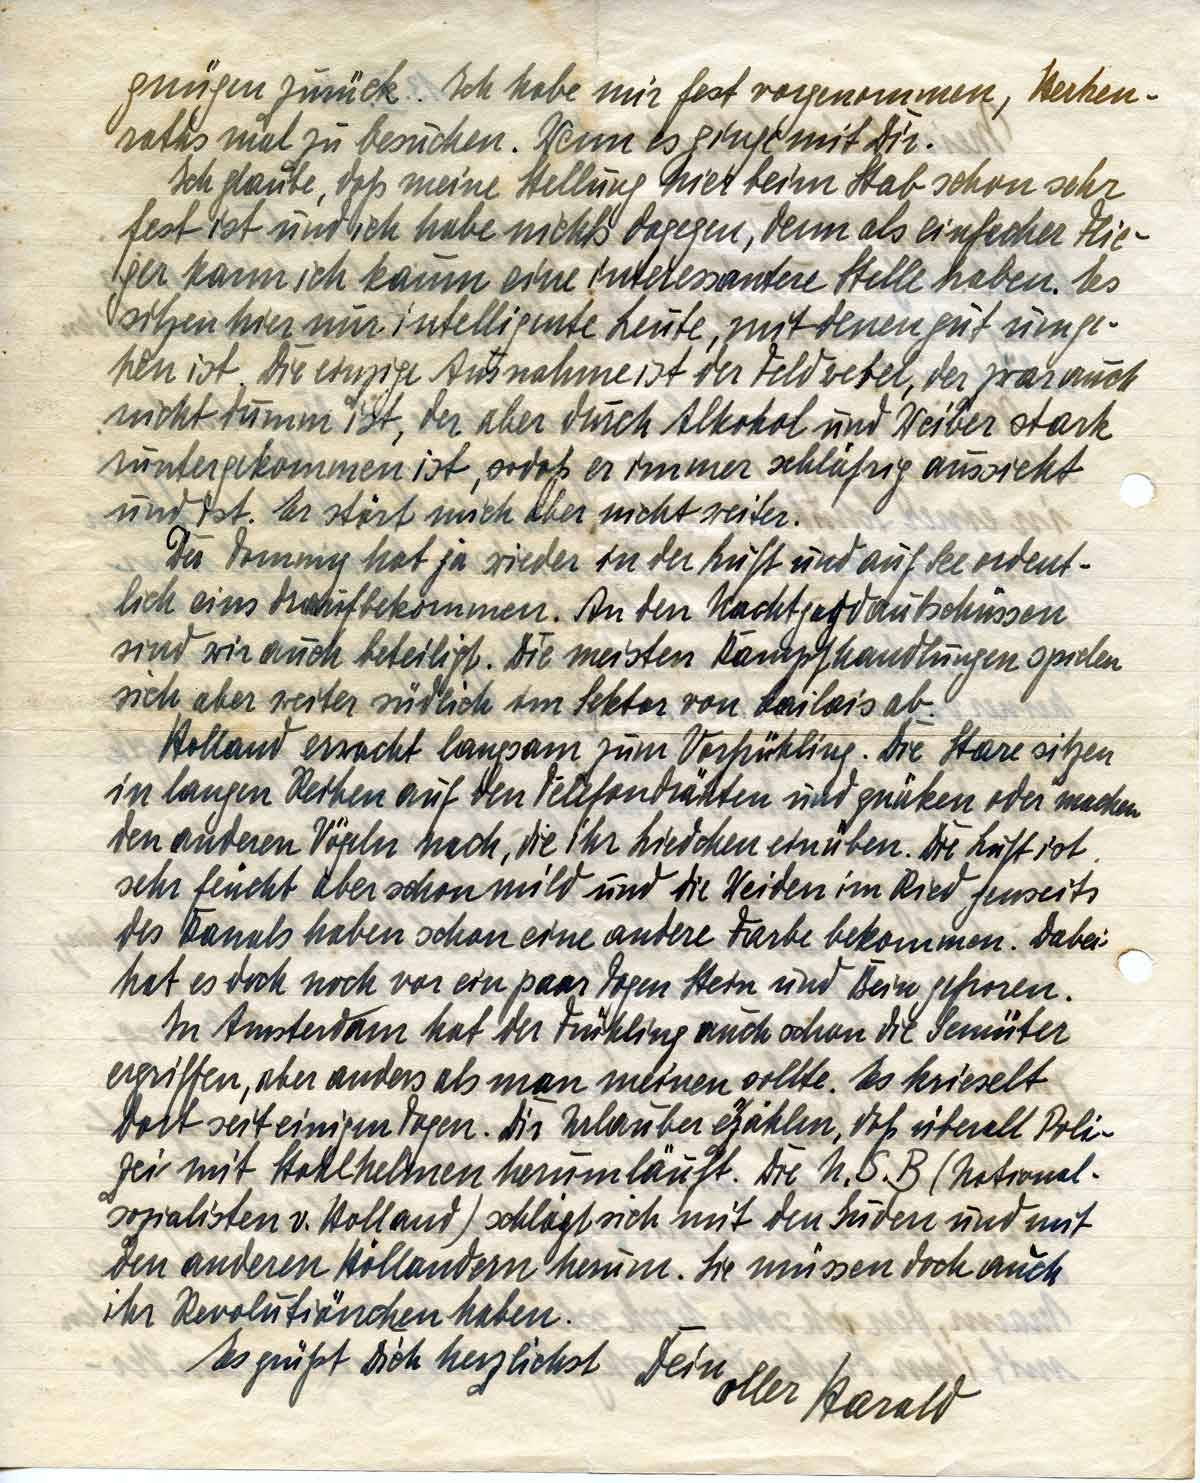 gnügen zurück. Ich habe mir fest vorgenommen, Herken-
raths mal zu besuchen. Wenn es ginge mit Dir.
Ich glaube, daß meine Stellung hier beim Stab schon sehr
fest ist und ich habe nichts dagegen, denn als einfacher Flie-
ger kann ich kaum eine interessantere Stelle haben. Es
sitzen hier nur intelligente Leute, mit denen gut umge-
hen ist. Die einzige Ausnahme ist der Feldwebel, der zwar auch
nicht dumm ist, der aber durch Alkohol und Weiber stark
runtergekommen ist, sodaß er immer schläfrig aussieht
und ist. Er stört mich aber nicht weiter.
Der Tommy hat ja wieder in der Luft und auf See ordent-
lich eins draufbekommen. An den Nachtjagdabschüssen
sind wir auch beteiligt. Die meisten Kampfhandlungen spielen
sich aber weiter südlich im Sektor von Callais ab.
Holland erwacht langsam zum Vorfrühling. Die Stare sitzen
in langen Reihen auf den Telefondrähten und quäken oder machen
den anderen Vögeln nach, die ihr Liedchen einüben. Die Luft ist
sehr feucht aber schon mild und die Weiden im Ried jenseits
des Kanals haben schon eine andere Farbe bekommen. Dabei
hat es doch noch vor ein paar Tagen Stein und Bein gefroren.
In Amsterdam hat der Frühling auch schon die Gemüter
ergriffen, aber anders als man meinen sollte. Es krieselt
dort seit einigen Tagen. Die Urlauber erzählen, daß überall Poli-
zei mit Stahlhelmen herumläuft. Die N.S.B (National-
sozialisten v. Holland) schlägt sich mit den Juden und mit
den anderen Holländern herum. Sie müssen doch auch
ihr Revolutiönchen haben.
Es grüßt Dich herzlichst Dein
oller Harald